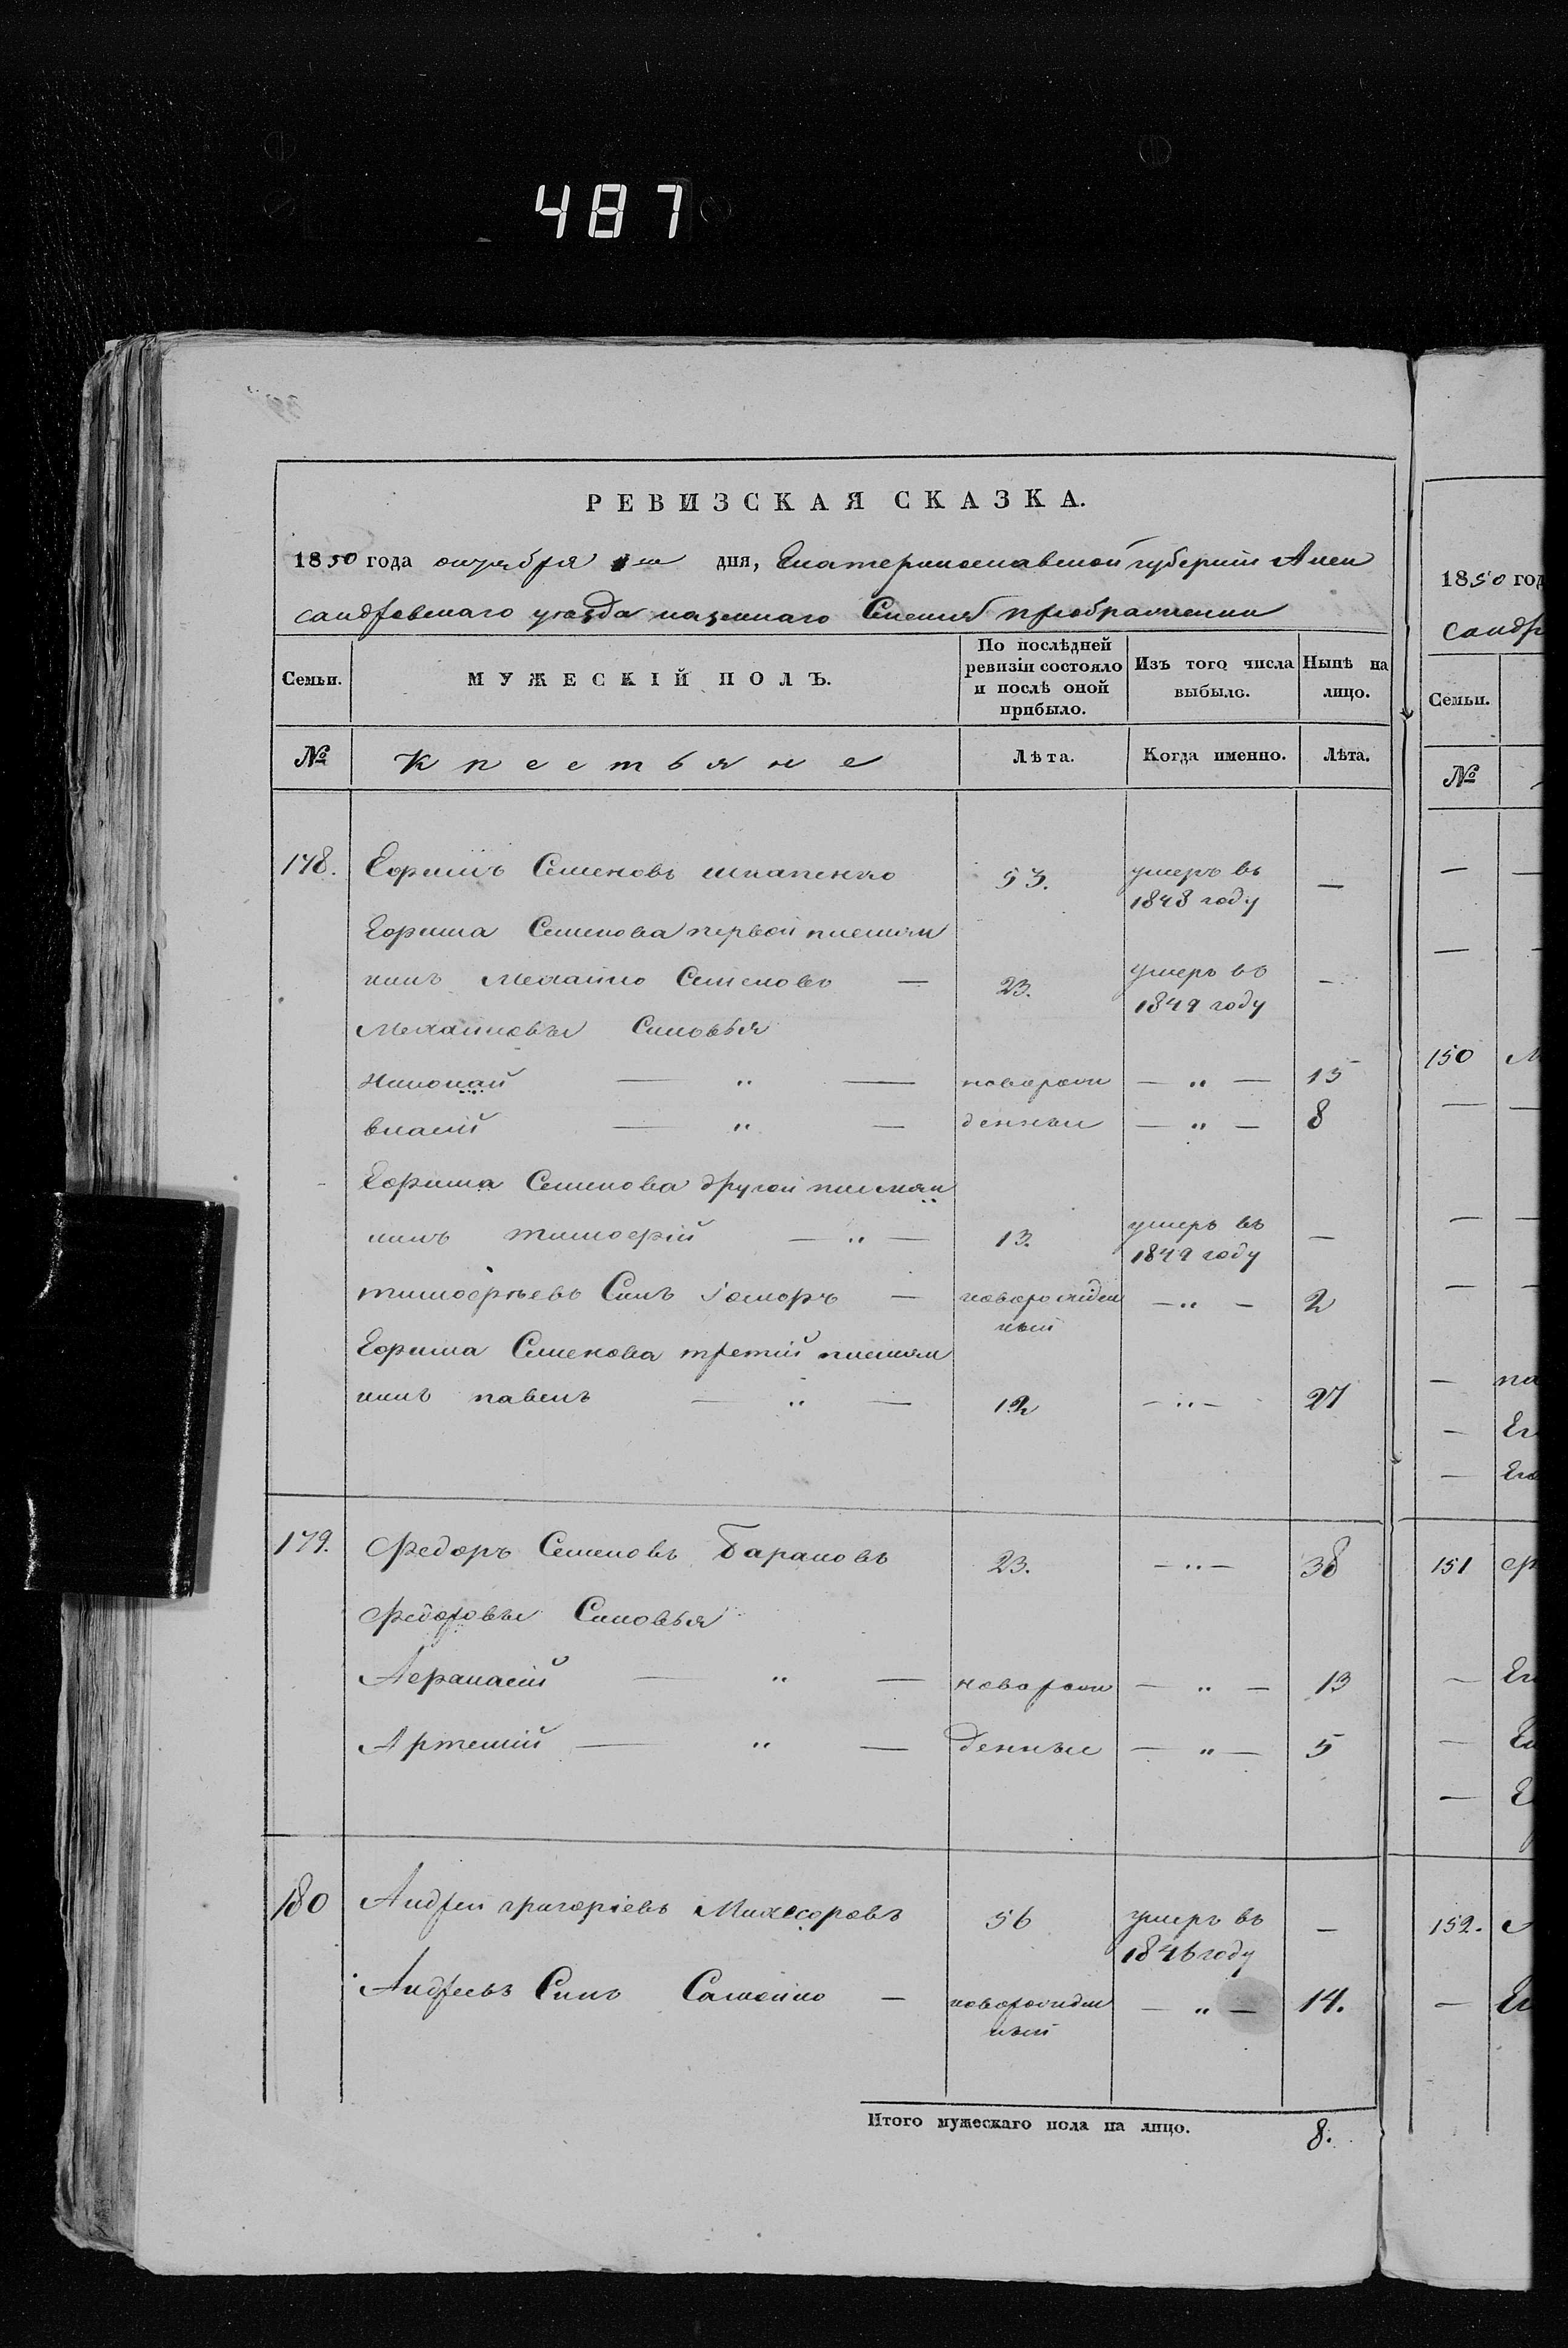 487
РЕВИЗСКАЯ СКАЗКА.
1850 года октября 1го дня, Екатеринославской губернии Алек
сандровскаго уезда казеннаго Селения преображенки
Семьи.
МУЖЕСКІЙ ПОЛЪ.
По послѣдней ревизіи состояло и послѣ оной прибыло.
Изъ того числа выбыло.
Нынѣ на лицо.
№ Крестьяне Лѣта. Когда именно. Лѣта.
178. Ефимъ Семеновъ шкапенко 53. умеръ въ 1848 году —
Ефима Семенова первой племян
никъ Михайло Семеновъ — 23. умеръ въ 1849 году —
Михайловы Сыновья
Николай — " — новорож — " — 15
власій — " — денные — " — 8
Ефима Семенова другой племян
никъ тимофій — " — 13. умеръ въ 1849 году —
тимофѣевъ Сынъ — новорожден ный — " — 2
Ефима Семенова третій племян
никъ павелъ — " — 12 — " — 27
179. Федоръ Семеновъ Барановъ 23. — " — 38
Федоровы Сыновья
Афанасій — " — новорож — " — 13
Артемій — " — денные — " — 5
180 Андрей григоріевъ 56 умеръ въ 1846 году —
Андреевъ Сынъ Самойло — новорожден ный — " — 14.
Итого мужескаго пола на лицо. 8.
1850 год
сандр
Семьи.
№
150
па
151
152.